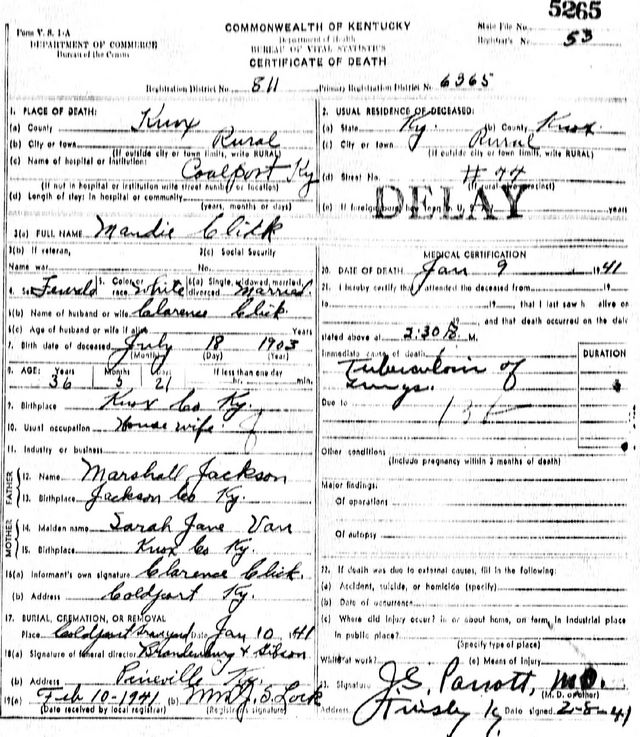 5265
Form V. S. 1-A
DEPARTMENT OF COMMERCE
Bureau of the Census
COMMONWEALTH OF KENTUCKY
Department of Health
BUREAU OF VITAL STATISTICS
CERTIFICATE OF DEATH
State File No.
Registrar's No. 53
Registration District No. 811 Primary Registration District No. 6365
1. PLACE OF DEATH:
(a) County Knox
(b) City or town Rural
(If outside city or town limits, write RURAL)
(c) Name of hospital or institution: Coalport Ky
(If not in hospital or institution write street number or location)
(d) Length of stay: In hospital or community
(years, months or days)
2. USUAL RESIDENCE OF DECEASED:
(a) State Ky. (b) County Knox
(c) City or town Rural
(If outside city or town limits, write RURAL)
(d) Street No. # 44
DELAY
(e) If foreign born, years
3(a) FULL NAME Maudie Click
3(b) If veteran, 3(c) Social Security
Name war No.
4. Sex Female 5. Color or race White 6(a) Single, widowed, married, divorced Married.
6(b) Name of husband or wife Clarence Click
6(c) Age of husband or wife if alive Years
7. Birth date of deceased July 18 1903
(Month) (Day) (Year)
8. AGE: Years Months Days If less than one day
36 5 21 hr. min.
9. Birthplace Knox Co Ky.
10. Usual occupation House wife
11. Industry or business
FATHER
12. Name Marshall Jackson
13. Birthplace Jackson Co Ky.
MOTHER
14. Maiden name Sarah Jane Van
15. Birthplace Knox Co Ky.
16(a) Informant's own signature Clarence Click.
(b) Address Coldport Ky.
17. BURIAL, CREMATION, OR REMOVAL
Place Coldport Graveyard Date Jan 10 1941
18(a) Signature of funeral director Brandenburg & Gibson
(b) Address Pineville Ky.
19(a) Feb 10-1941 (b) Mrs J. S. Lock
(Date received by local registrar) (Registrar's signature)
MEDICAL CERTIFICATION
20. DATE OF DEATH Jan 9 1941
21. I hereby certify that I attended the deceased from 19
to 19, that I last saw h alive on
19, and that death occurred on the date
stated above at 2:30 P. M.
Immediate cause of death DURATION
Tuberculosis of
Lungs.
Due to 13
Other conditions
(Include pregnancy within 3 months of death)
Major findings:
Of operations
Of autopsy
22. If death was due to external causes, fill in the following:
(a) Accident, suicide, or homicide (specify)
(b) Date of occurrence
(c) Where did injury occur? in or about home, on farm, in industrial place
in public place?
(Specify type of place)
While at work? (e) Means of Injury
23. Signature J. S. Parrott, M.D.
(M. D. or other)
Address Tinsley Ky Date signed 2-8-41